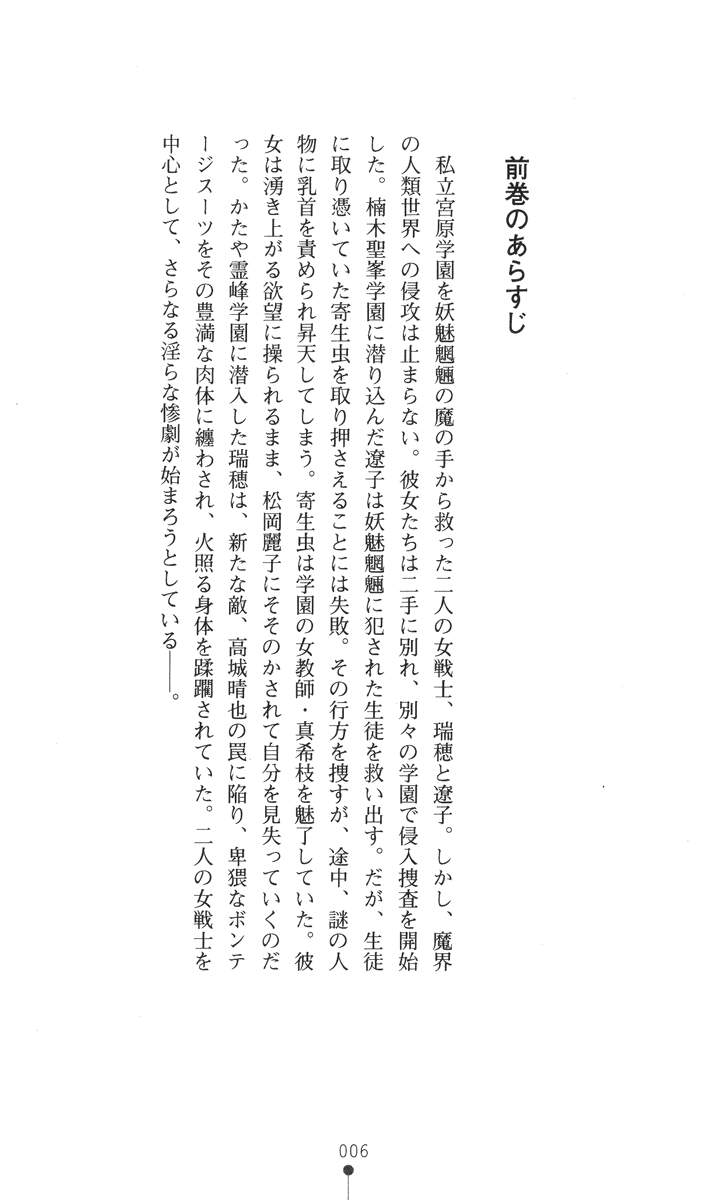 前巻のあらすじ
私立宮原学園を妖魅魍魎の魔の手から救った二人の女戦士、瑞穂と遼子。しかし、魔界
の人類世界への侵攻は止まらない。彼女たちは二手に別れ、別々の学園で侵入捜査を開始
した。楠木聖峯学園に潜り込んだ遼子は妖魅魍魎に犯された生徒を救い出す。だが、生徒
に取り憑いていた寄生虫を取り押さえることには失敗。その行方を捜すが、途中、謎の人
物に乳首を責められ昇天してしまう。寄生虫は学園の女教師・真希枝を魅了していた。彼
女は湧き上がる欲望に操られるまま、松岡麗子にそそのかされて自分を見失っていくのだ
った。かたや霊峰学園に潜入した瑞穂は、新たな敵、高城晴也の罠に陥り、卑猥なボンテ
ージスーツをその豊満な肉体に纏わされ、火照る身体を蹂躙されていた。二人の女戦士を
中心として、さらなる淫らな惨劇が始まろうとしている――。
006